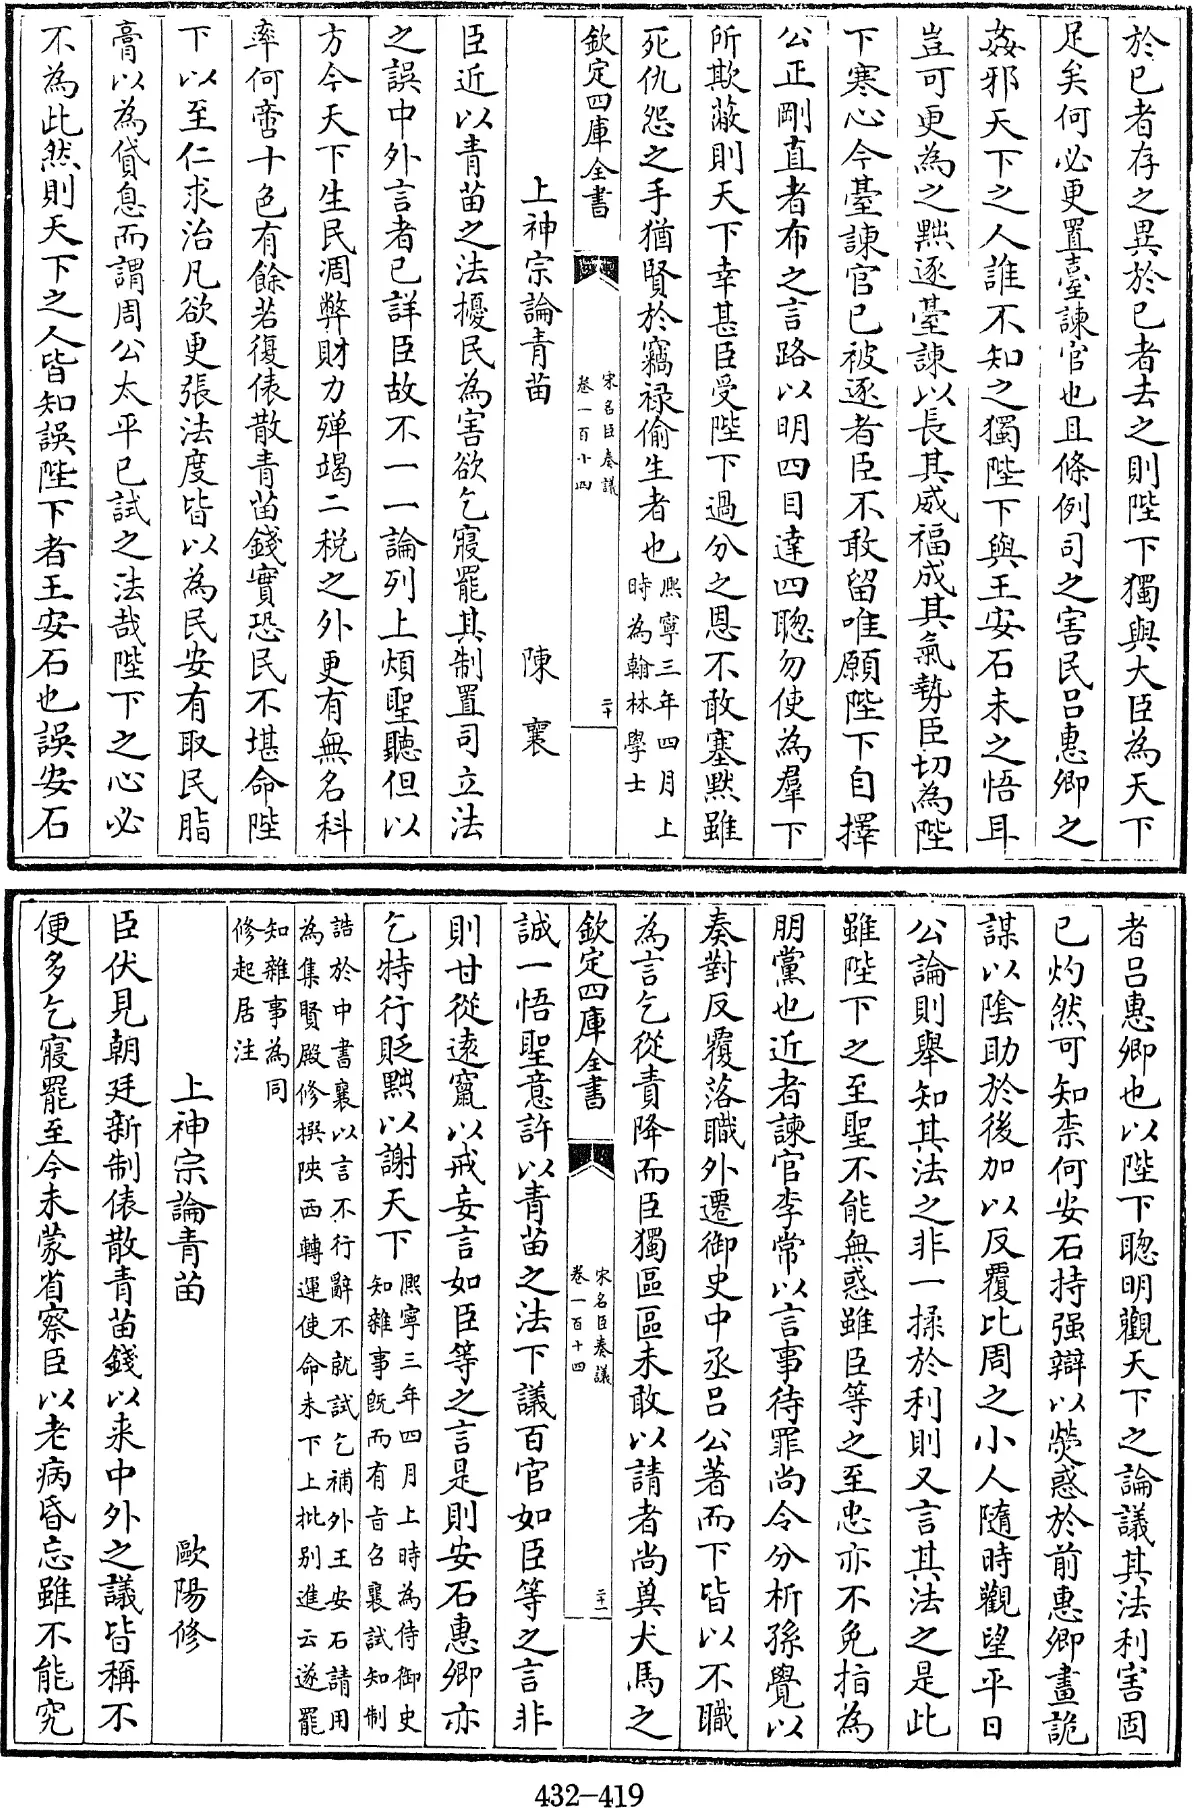 於己者存之異於己者去之則陛下獨與大臣為天下
足矣何必更置臺諫官也且條例司之害民呂惠卿之
姦邪天下之人誰不知之獨陛下與王安石未之悟耳
豈可更為之黜逐臺諫以長其威福成其氣勢臣切為陛
下寒心今臺諫官已被逐者臣不敢留唯願陛下自擇
公正剛直者布之言路以明四目達四聰勿使為羣下
所欺蔽則天下幸甚臣受陛下過分之恩不敢塞黙雖
死仇怨之手猶賢於竊禄偷生者也熙寧三年四月上
時為翰林學士
欽定四庫全書
宋名臣奏議
卷一百十四
二十
上神宗論青苗 陳襄
臣近以青苗之法擾民為害欲乞寢罷其制置司立法
之誤中外言者已詳臣故不一一論列上煩聖聽但以
方今天下生民凋弊財力殫竭二税之外更有無名科
率何啻十色有餘若復俵散青苗錢實恐民不堪命陛
下以至仁求治凡欲更張法度皆以為民安有取民脂
膏以為貸息而謂周公太平已試之法哉陛下之心必
不為此然則天下之人皆知誤陛下者王安石也誤安石
者呂惠卿也以陛下聰明觀天下之論議其法利害固
已灼然可知柰何安石持强辯以熒惑於前惠卿畫詭
謀以陰助於後加以反覆比周之小人隨時觀望平日
公論則舉知其法之非一揉於利則又言其法之是此
雖陛下之至聖不能無惑雖臣等之至忠亦不免指為
朋黨也近者諫官李常以言事待罪尚令分析孫覺以
奏對反覆落職外遷御史中丞呂公著而下皆以不職
為言乞從責降而臣獨區區未敢以請者尚奠犬馬之
欽定四庫全書
宋名臣奏議
卷一百十四
二十一
誠一悟聖意許以青苗之法下議百官如臣等之言非
則甘從逺竄以戒妄言如臣等之言是則安石惠卿亦
乞特行貶黜以謝天下熙寧三年四月上時為侍御史
知雜事既而有旨召襄試知制
誥於中書襄以言不行辭不就試乞補外王安石請用
為集賢殿修撰陝西轉運使命未下上批别進云遂罷
知雜事為同
修起居注
上神宗論青苗 歐陽修
臣伏見朝廷新制俵散青苗錢以来中外之議皆稱不
便多乞寢罷至今未蒙省察臣以老病昏忘雖不能究
432-419